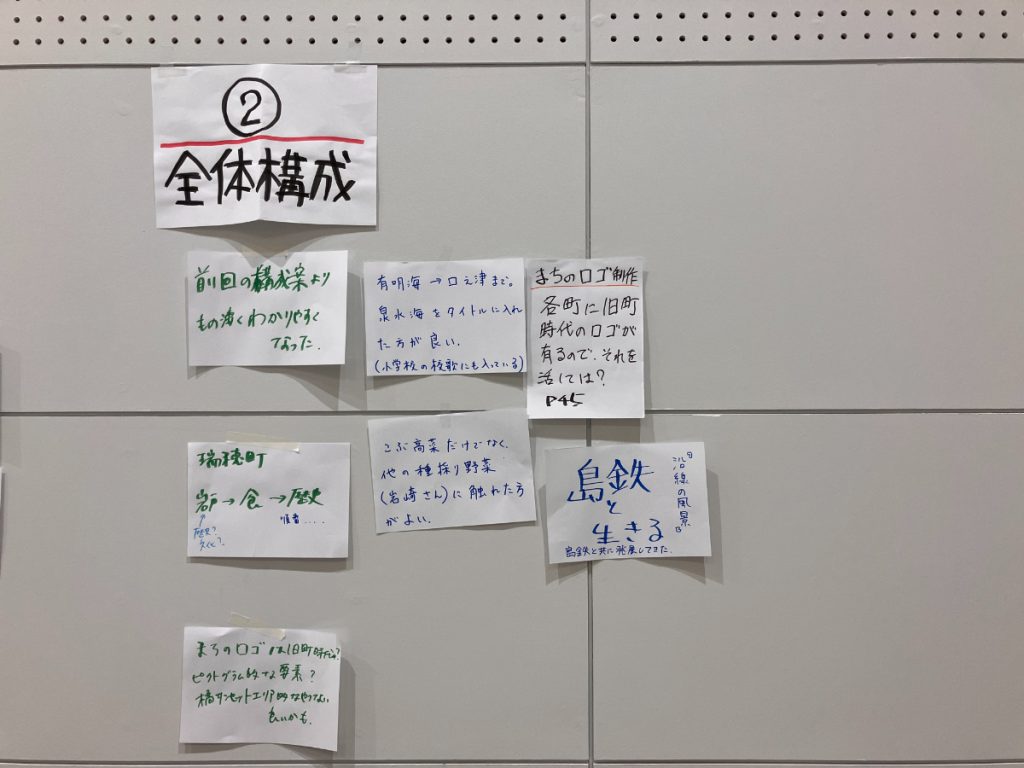 ②
全体構成
前回の構成案より
もの凄くわかりやすく
なった.
有明海→口之津まで。
泉水海をタイトルに入れ
た方が良い.
(小学校の校歌にも入っている)
まちのロゴ制作
各町に旧町
時代のロゴが
有るので、それを
活しては?
P45
瑞穂町
岩戸→食→歴史
↑
歴史?
文化?
こぶ高菜だけでなく、
他の種採り野菜
(岩崎さん)に触れた方
がよい.
島鉄
と
生きる
沿線の風景
島鉄と共に発展してきた.
まちのロゴは旧町時代の?
ピクトグラム的な要素?
橘サンセットエリア的なやつない
良いかも.